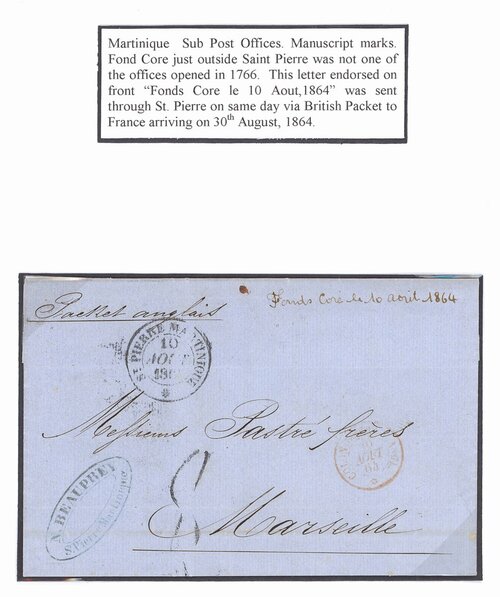 Martinique Sub Post Offices. Manuscript marks.
Fond Core just outside Saint Pierre was not one of
the offices opened in 1766. This letter endorsed on
front “Fonds Core le 10 Aout,1864” was sent
through St. Pierre on same day via British Packet to
France arriving on 30th August, 1864.
Packet anglais
Fonds Coré le 10 aout 1864
ST PIERRE MARTINIQUE
10
AOUT
Messieurs Pastré frères
AOUT
64
8
A. BEAUPREY
St Pierre Martinique
Marseille